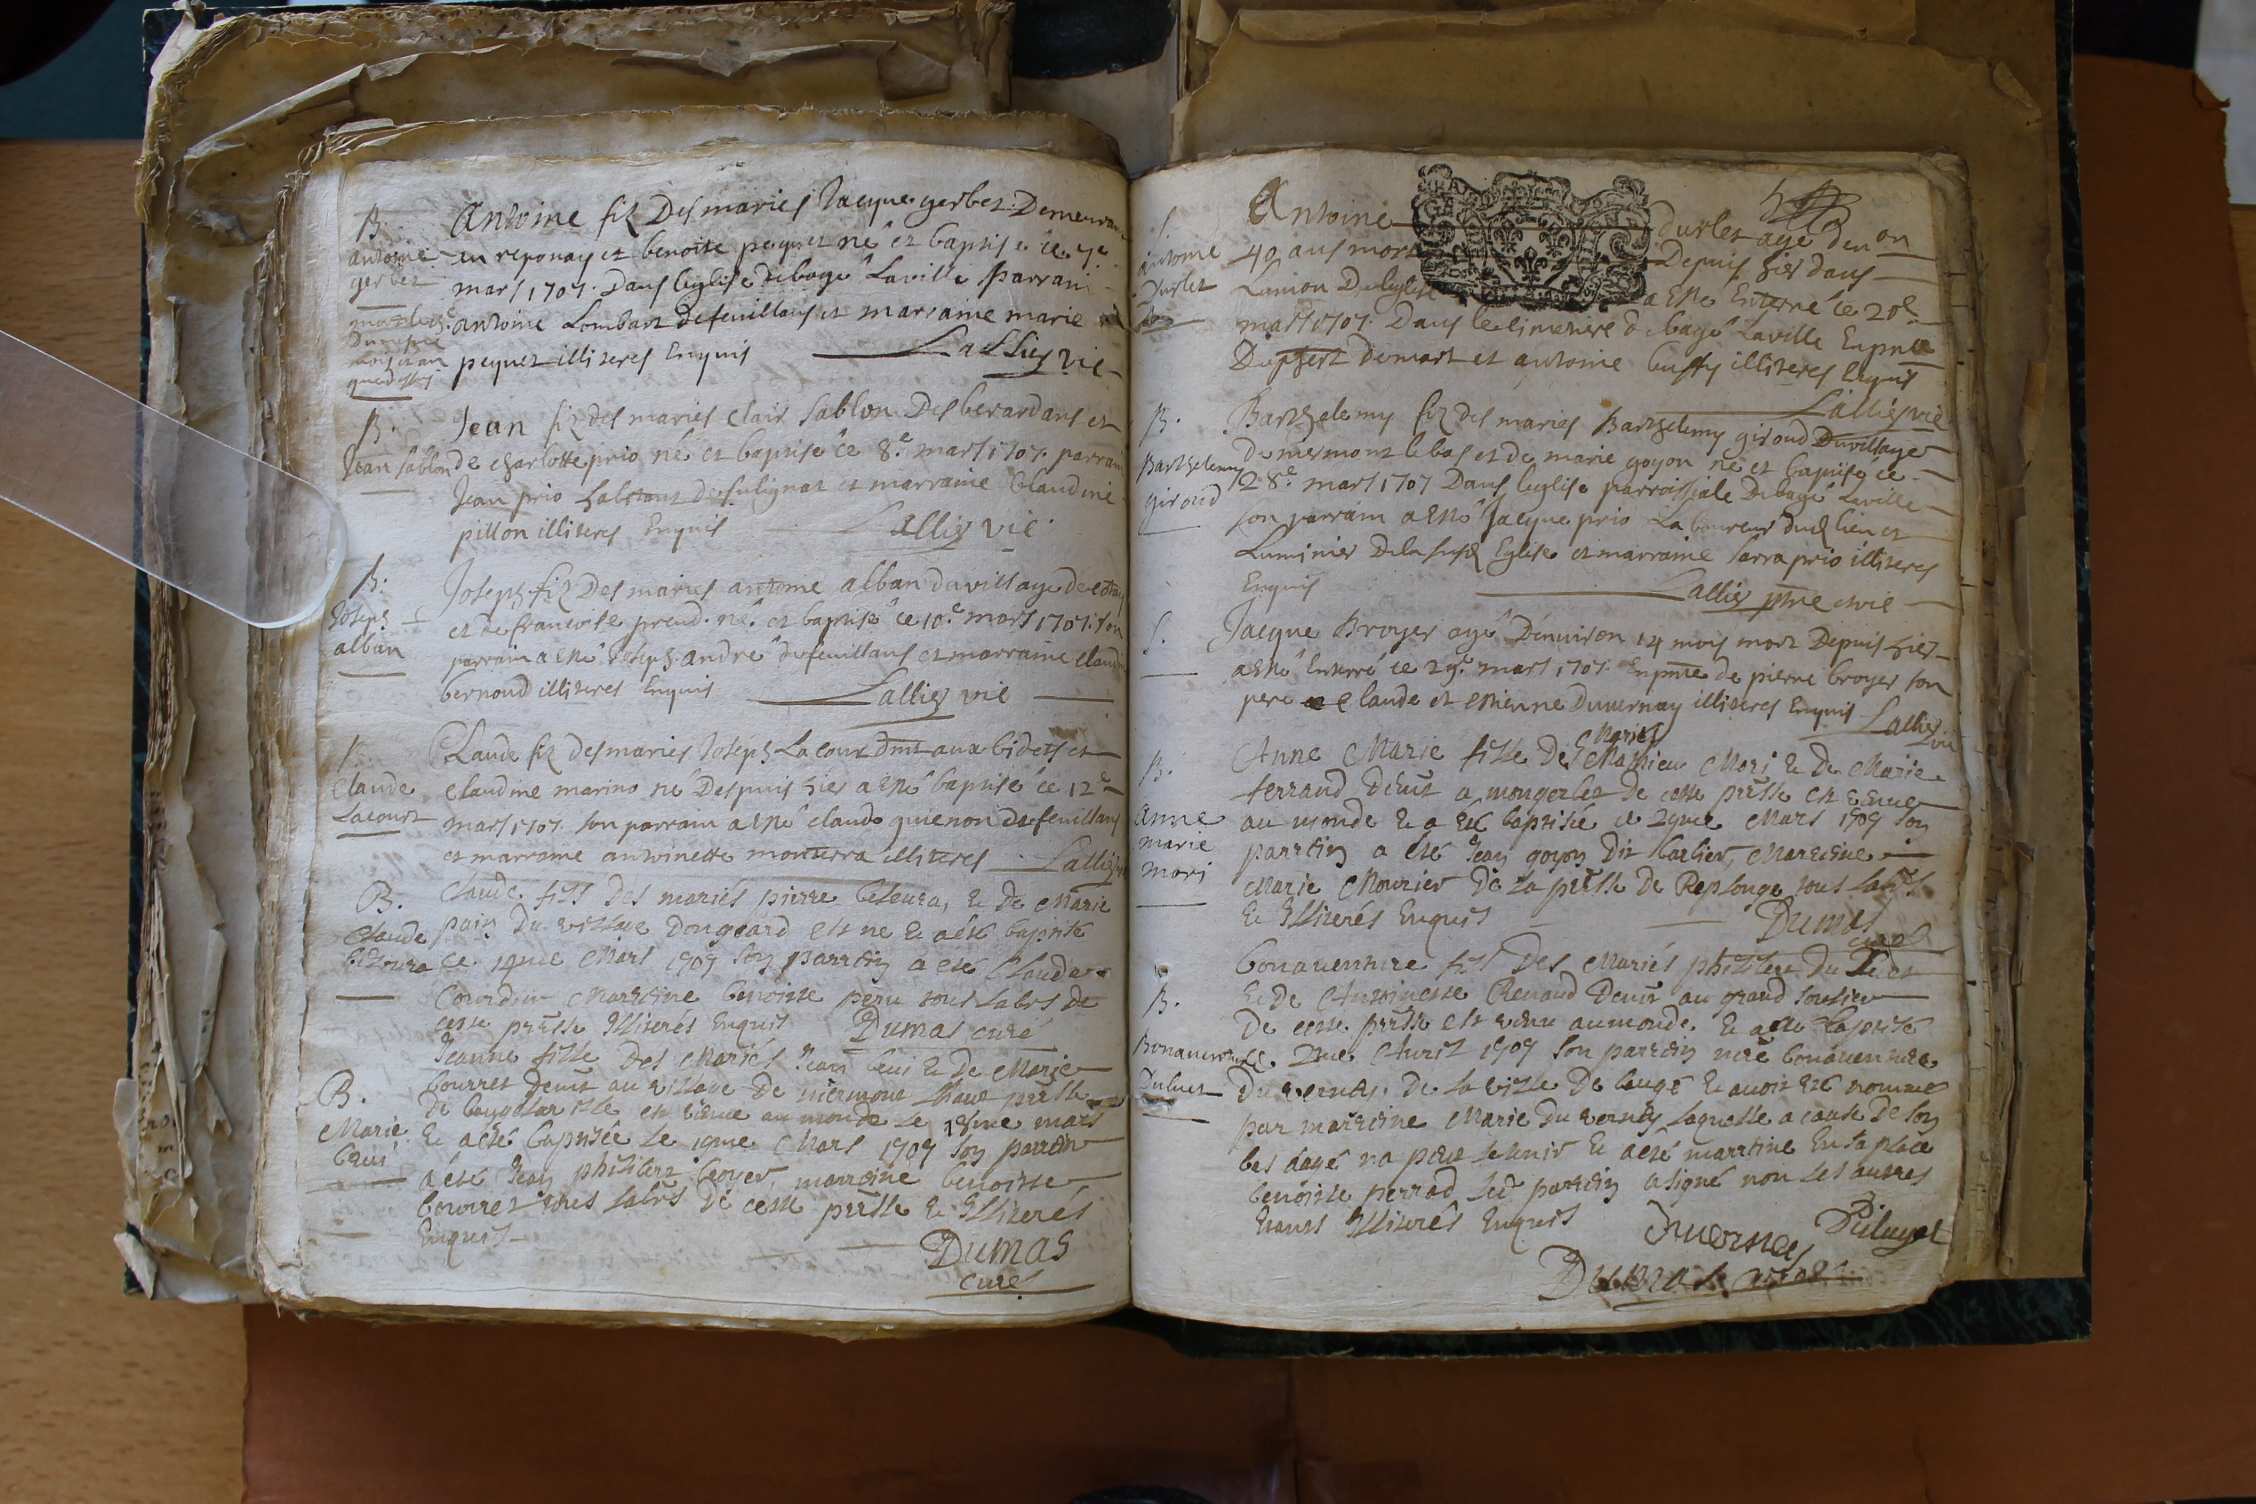 B.
antoine
gerbet
Antoine fiz Des mariés Jacque gerbet Demeurant
en reponay et benoite pequet né et baptisé ce 7e
mars 1707. Dans leglise debagé Laville parrain
antoine Lombart defeuillans et marraine marie
pequet illiteres Enquis Lallier vic
B.
Jean sablon
Jean fiz des mariés clair sablon Des berardans et
de charlotte prio né et baptisé ce 8e mars 1707. parrain
Jean prio habitant de sulignat et marraine Claudine
pillon illiteres Enquis Lallier vic
B.
Joseph
alban
Joseph fiz Des mariés antoine alban du village de
et de francoise preud. né et baptisé ce 10e mars 1707. son
parrain a esté Joseph andré defeuillans et marraine claudine
bernoud illiteres Enquis Lallier vic
Claude
Lacour
Claude fiz des mariés Joseph Lacour dmt aux bidets et
claudine marino né Despuis hier a esté baptisé ce 12e
mars 1707. son parrain a esté claude guienon defeuillans
et marraine antoinette monterra illiteres Lallier
B.
Claude
Claude fils des mariés pierre et de Marie
du village Dongeard est né et a esté baptisé
ce Mars 1707 son parrein a esté Claude
Marreine benoiste tous labrs de
cette prsse Illiterés Enquis Dumas curé
B.
Marie
Jeanne fille des Mariés Jean et de Marie
bourret demt au vilage de mermont prsse
de baugé la ville est venue au monde le 18me mars
et a esté baptisée le 19me Mars 1707 son parrein
a esté Jean philibert broyer, marreine benoiste
bourret tous labrs de cette prsse et Illiterés
Enquis
Dumas
curé
S.
Antoine
Durlet
Antoine Durlet agé denvon
40 ans mort Depuis hier dans
Lunion De leglise a esté Enterré ce 20e
mars 1707. Dans le cimetiere de bagé Laville En pnce
demart et antoine buffy illiteres Enquis
Lallier vic
B.
Barthelemy
giroud
Barthelemy fiz des mariés Barthelemy giroud Du village
de mermont le bas et de marie goyon né et baptisé ce
28e mars 1707 Dans leglise parroissiale Debagé Laville
son parrain a esté Jacque prio Laboureur dud lieu et
Luminier Dela susd Eglise et marraine sarra prio illiteres
Enquis Lallier ptre vic
S.
Jacque Broyer agé Denviron 14 mois mort Depuis hier
a esté Enterré ce 29e mars 1707. En pnce de pierre broyer son
pere claude et etienne Duvernay illiteres Enquis Lallier
vic
B.
anne
marie
mori
Anne Marie fille des Mariés Mathieu Mori et de Marie
ferrand demt a mongerbet de cette prsse est venue
au monde et a esté baptisée le 29me Mars 1707 son
parrein a esté Jean goyon dit barlier, Marreine
Marie Mourier de la prsse de Replonge tous labrs
et Illiterés Enquis Dumas
curé
B.
Bonaventure
Duluet
bonaventure fils des Mariés philibert Du Luet
et de Antoinette Renaud demt au grand
de cette prsse est venu au monde et a esté baptisé
ce 2me Avril 1707 son parrein bonaventure
Duvernay de la ville de baugé et avoir esté nommée
par marreine Marie du vernay laquelle a cause de son
bas dagé na peu le tenir et a esté marreine En sa place
benoiste perrad led parrein a signé non les autres
Enants Illiterés Enquis
Duvernay